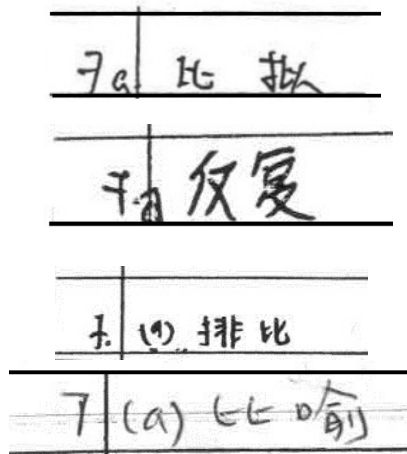 7a 比拟
7.a 仅复
7. (a) 排比
7 (a) 比喻